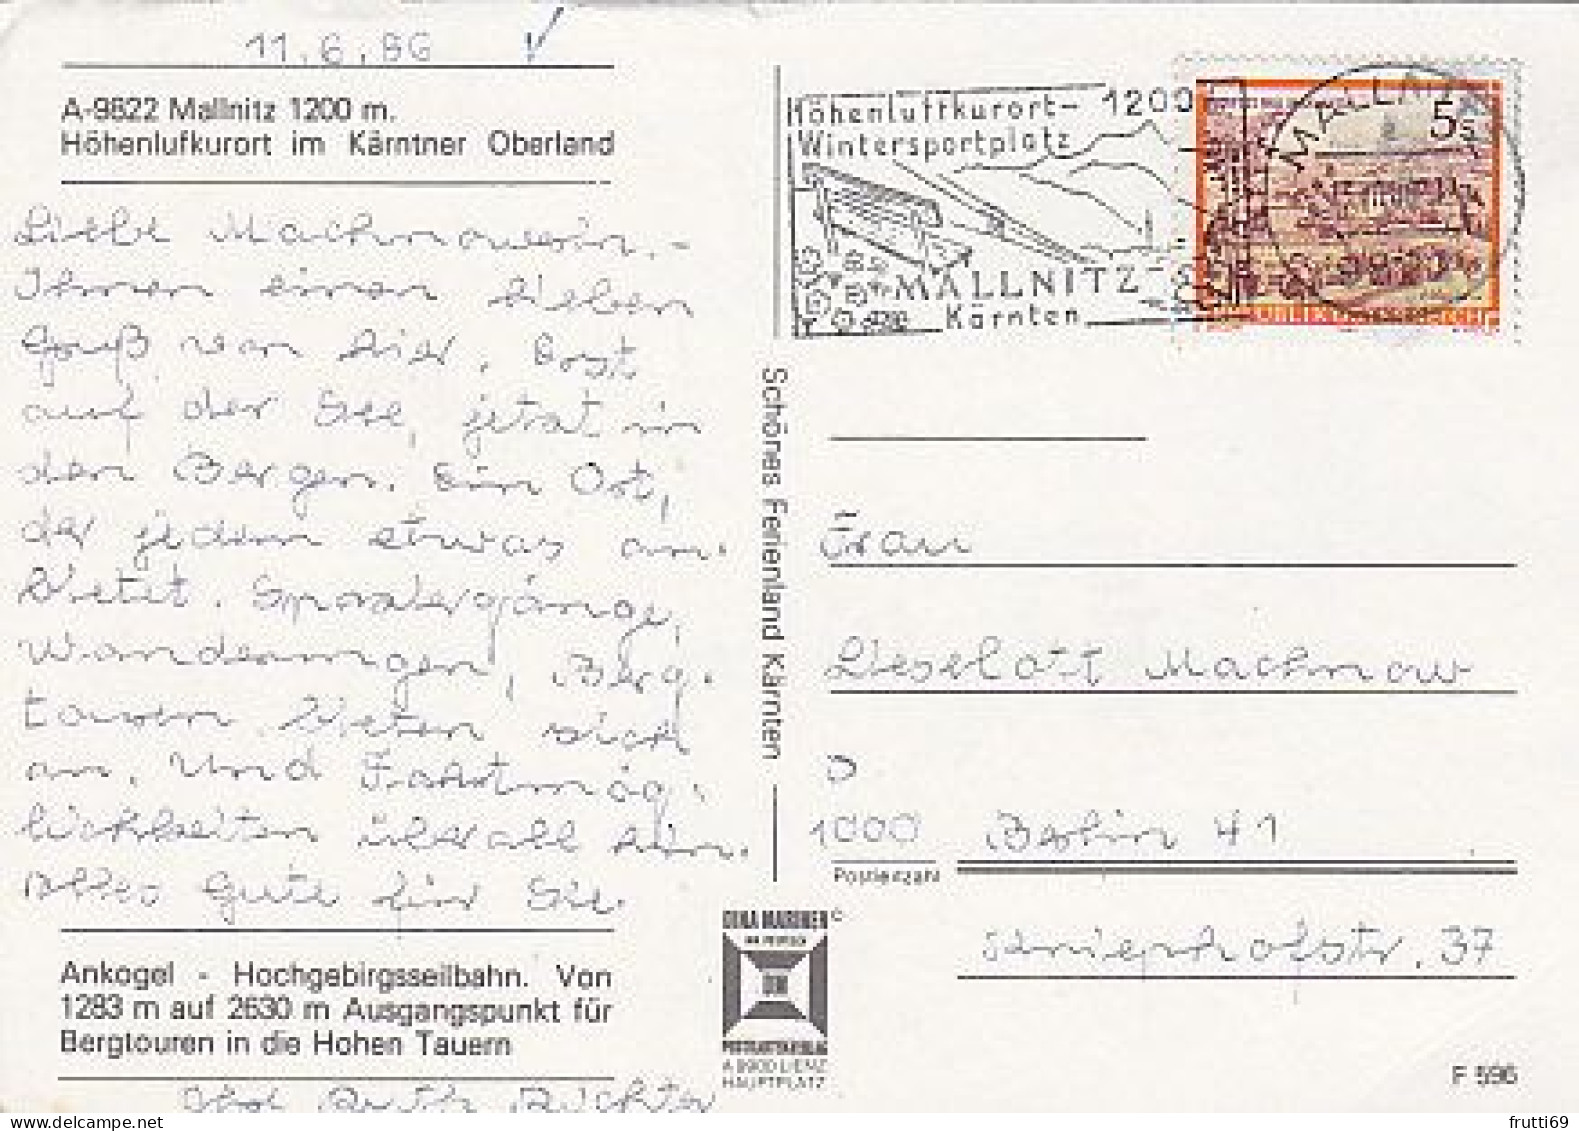 11.6.86
A-9822 Mallnitz 1200 m.
Höhenlufkurort im Kärntner Oberland
Liebe Machnowerin. -
Ihnen einen lieben
Gruß von hier. Erst
auf der See, jetzt in
den Bergen. Ein Ort,
der jedem etwas an-
bietet. Spaziergänge,
Wanderungen, Berg-
touren bieten sich
an. Und Fahrtmög-
lichkeiten überall hin.
Alles Gute für Sie.
Ankogel - Hochgebirgsseilbahn. Von
1283 m auf 2630 m Ausgangspunkt für
Bergtouren in die Hohen Tauern
Ruth Richter
Schönes Ferienland Kärnten
Höhenluftkurort- 1200
Wintersportplatz
MALLNITZ
Kärnten
MALLNITZ
5s
Frau
Lieselott Machnow
D
1000 Berlin 41
Postleitzahl
37
POSTKARTENVERLAG
A 9900 LIENZ
HAUPTPLATZ
F 596
frutti69